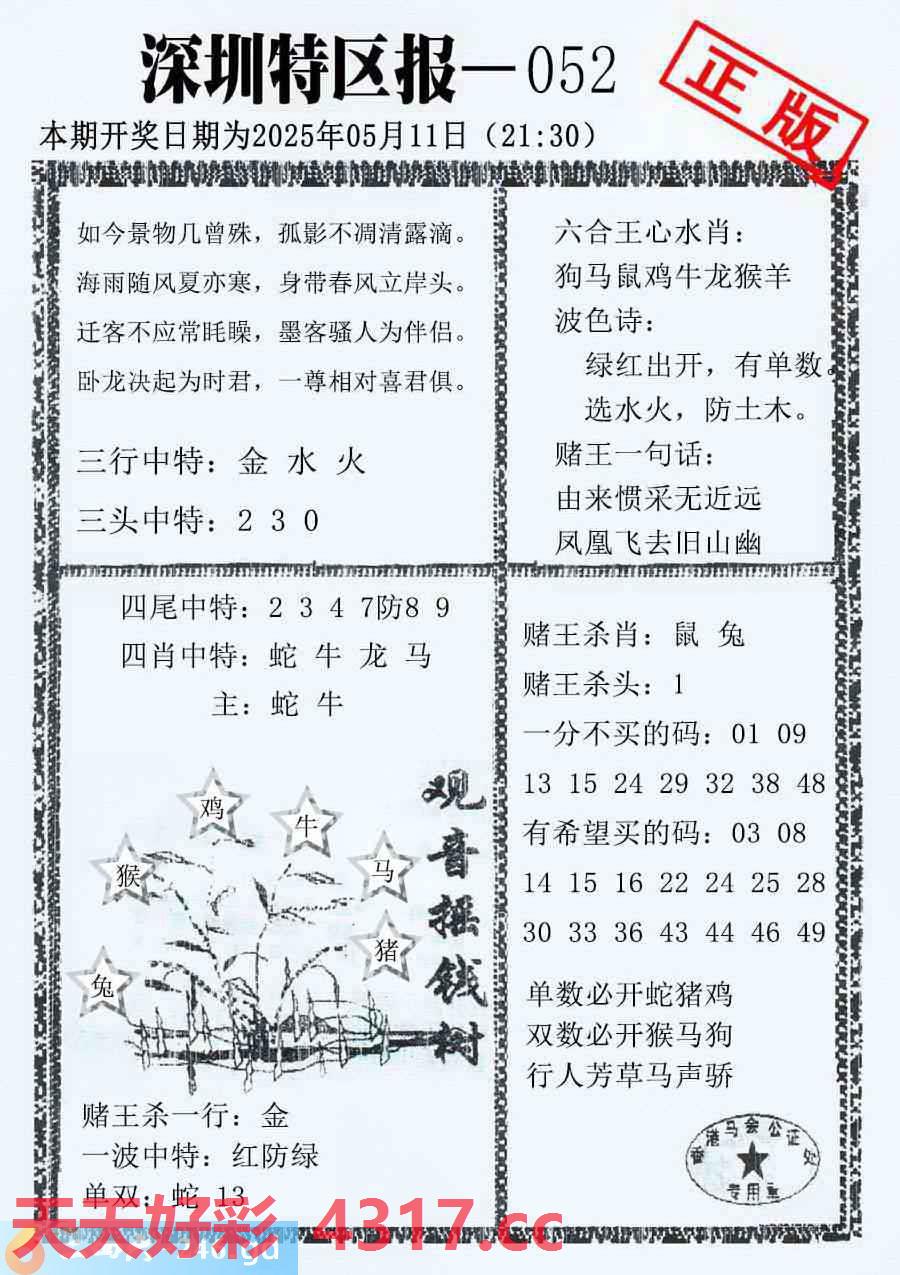 深圳特区报—052
正版
本期开奖日期为2025年05月11日（21:30）
如今景物几曾殊，孤影不凋清露滴。
海雨随风夏亦寒，身带春风立岸头。
迁客不应常眊矂，墨客骚人为伴侣。
卧龙决起为时君，一尊相对喜君俱。
三行中特：金 水 火
三头中特：2 3 0
六合王心水肖：
狗马鼠鸡牛龙猴羊
波色诗：
绿红出开，有单数。
选水火，防土木。
赌王一句话：
由来惯采无近远
凤凰飞去旧山幽
四尾中特：2 3 4 7防8 9
四肖中特：蛇 牛 龙 马
主：蛇 牛
观音摇钱树
鸡
牛
猴
马
猪
兔
赌王杀一行：金
一波中特：红防绿
单双：蛇 13
赌王杀肖：鼠 兔
赌王杀头：1
一分不买的码：01 09
13 15 24 29 32 38 48
有希望买的码：03 08
14 15 16 22 24 25 28
30 33 36 43 44 46 49
单数必开蛇猪鸡
双数必开猴马狗
行人芳草马声骄
香港马会公证处
专用章
天天好彩 4317.cc